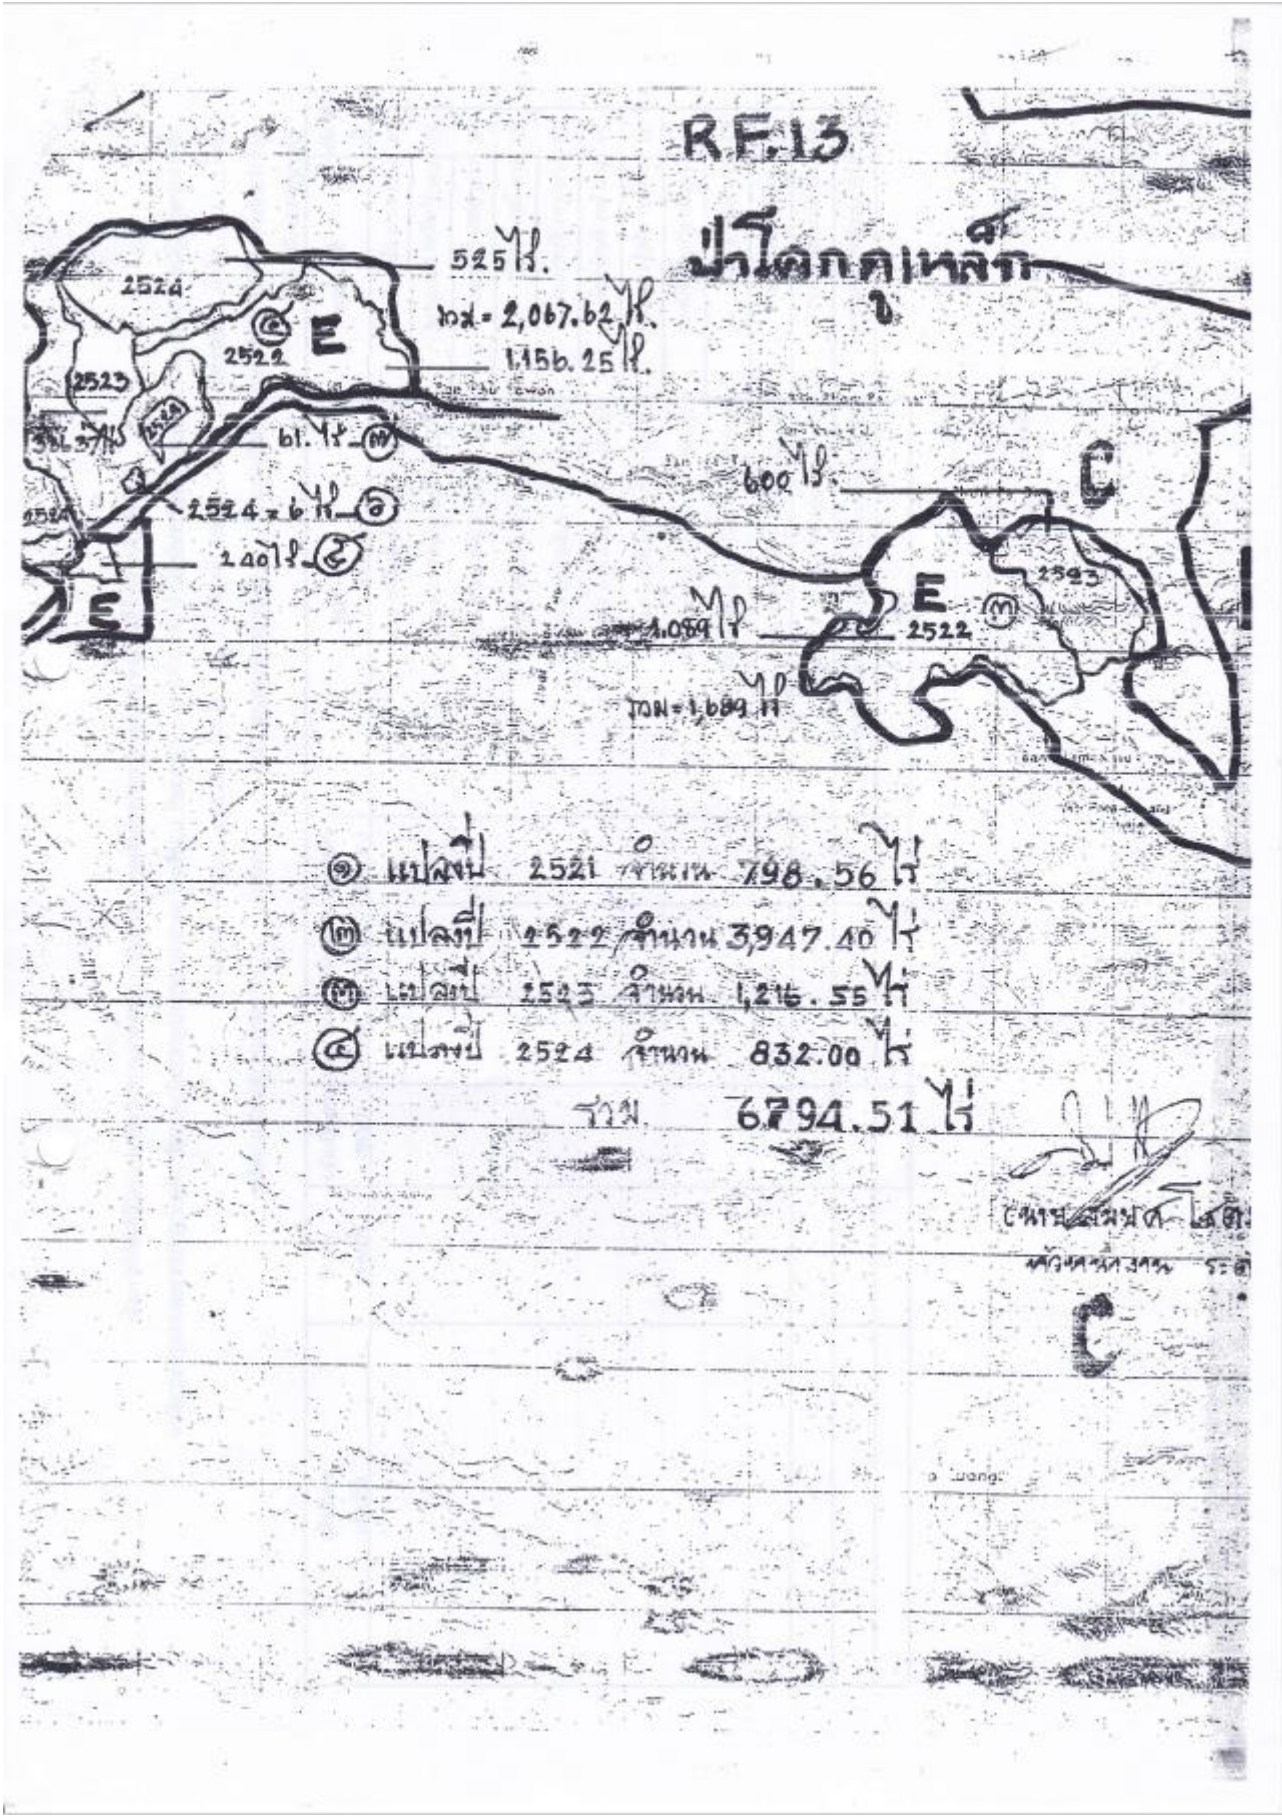 RF.13
ป่าโคกภูเหล็ก
525 ไร่.
2524
รวม = 2,067.62 ไร่.
๔ E
2522
1,156.25 ไร่.
2523
2524
61. ไร่ ๓
600 ไร่.
C
2524 = 6 ไร่ ๖
2524
240 ไร่ ๕
E
2523
E ๓
2522
1,089 ไร่
รวม = 1,689 ไร่
๑ แปลงปี 2521 จำนวน 798.56 ไร่
๒ แปลงปี 2522 จำนวน 3,947.40 ไร่
๓ แปลงปี 2523 จำนวน 1,216.55 ไร่
๔ แปลงปี 2524 จำนวน 832.00 ไร่
รวม 6794.51 ไร่
หัวหน้างาน
C